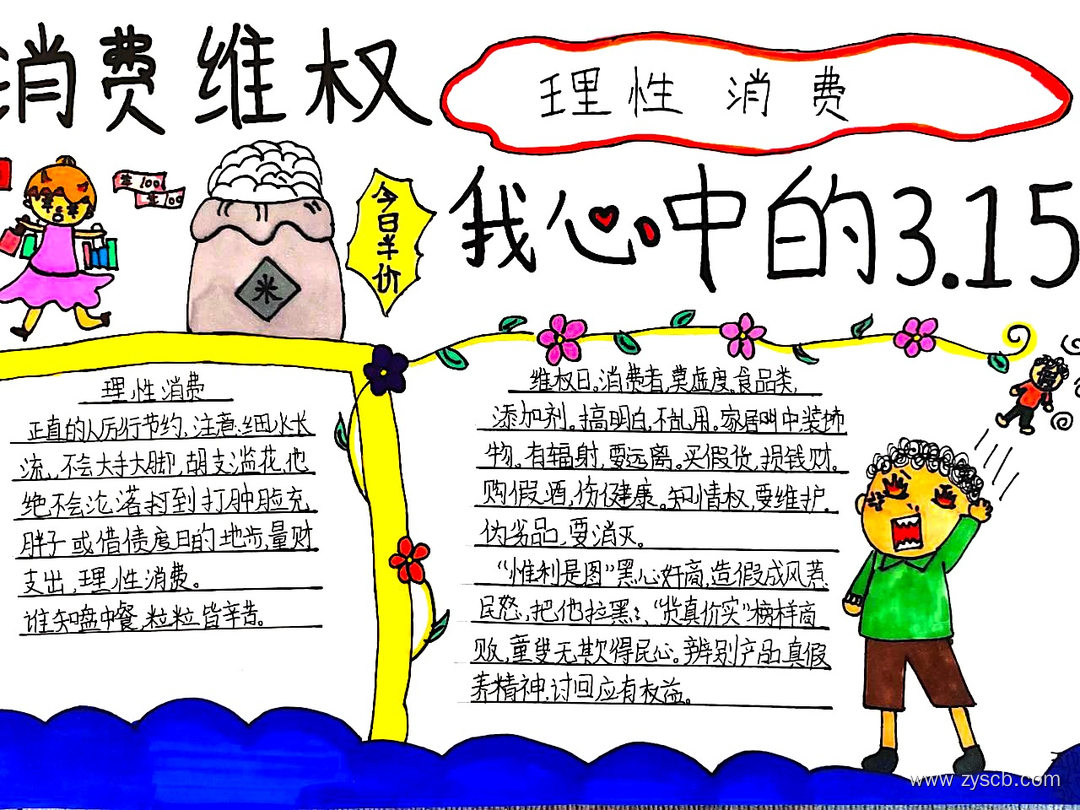 消费维权
理性消费
我心中的3.15
100
100
米
今日半价
理性消费
正真的人厉行节约，注意细水长
流，不会大手大脚，胡支滥花，他
绝不会沦落到打肿脸充
胖子或借债度日的地步，量财
支出，理性消费。
谁知盘中餐，粒粒皆辛苦。
维权日，消费者，莫虚度。食品类，
添加剂。搞明白，不乱用。家居中，装饰
物。有辐射，要远离。买假货，损钱财。
购假酒，伤健康。知情权，要维护。
伪劣品，要消灭。
“惟利是图”黑心奸商，造假成风惹
民怒，把他拉黑；“货真价实”榜样商
贩，童叟无欺得民心。辨别产品真假
养精神，讨回应有权益。
www.zyscb.com